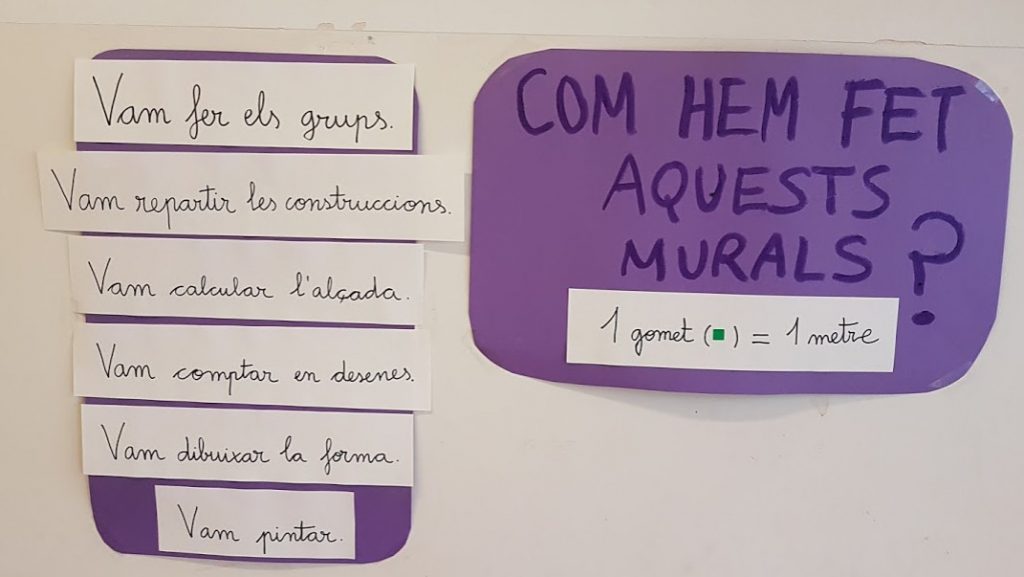 Vam fer els grups.
Vam repartir les construccions.
Vam calcular l'alçada.
Vam comptar en desenes.
Vam dibuixar la forma.
Vam pintar.
COM HEM FET
AQUESTS
MURALS?
1 gomet (■) = 1 metre